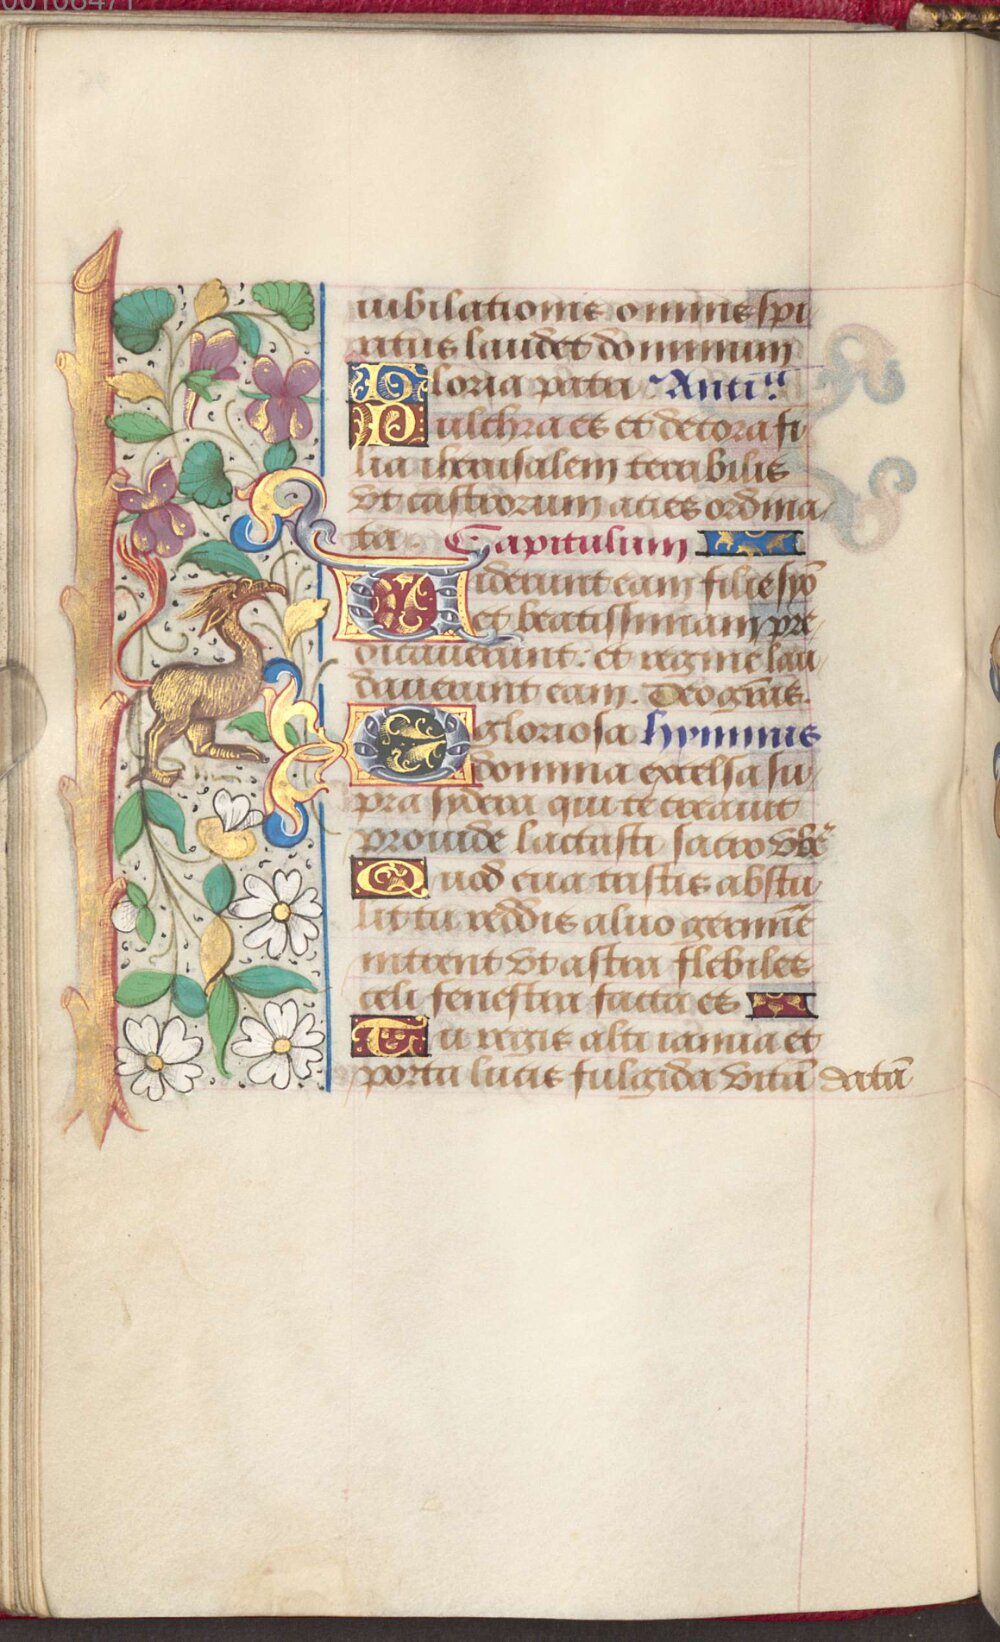 iubilationis omnis spi
ritus laudet dominum
Gloria patri Anti͠a
Pulchra es et decora fi
lia iherusalem terribilis
vt castrorum acies ordina
ta. Capitulum
Viderunt eam filie syō
et beatissimam pre
dicauerunt: et regine lau
dauerunt eam. Deo grās.
O gloriosa hymnus
domina excelsa su
pra sydera qui te creauit
prouide lactasti sacro vbē
Quod eua tristis abstu
lit tu reddis almo germīe
intrent vt astra flebiles
celi fenestra facta es
Tu regis alti ianua et
porta lucis fulgida vitā datā